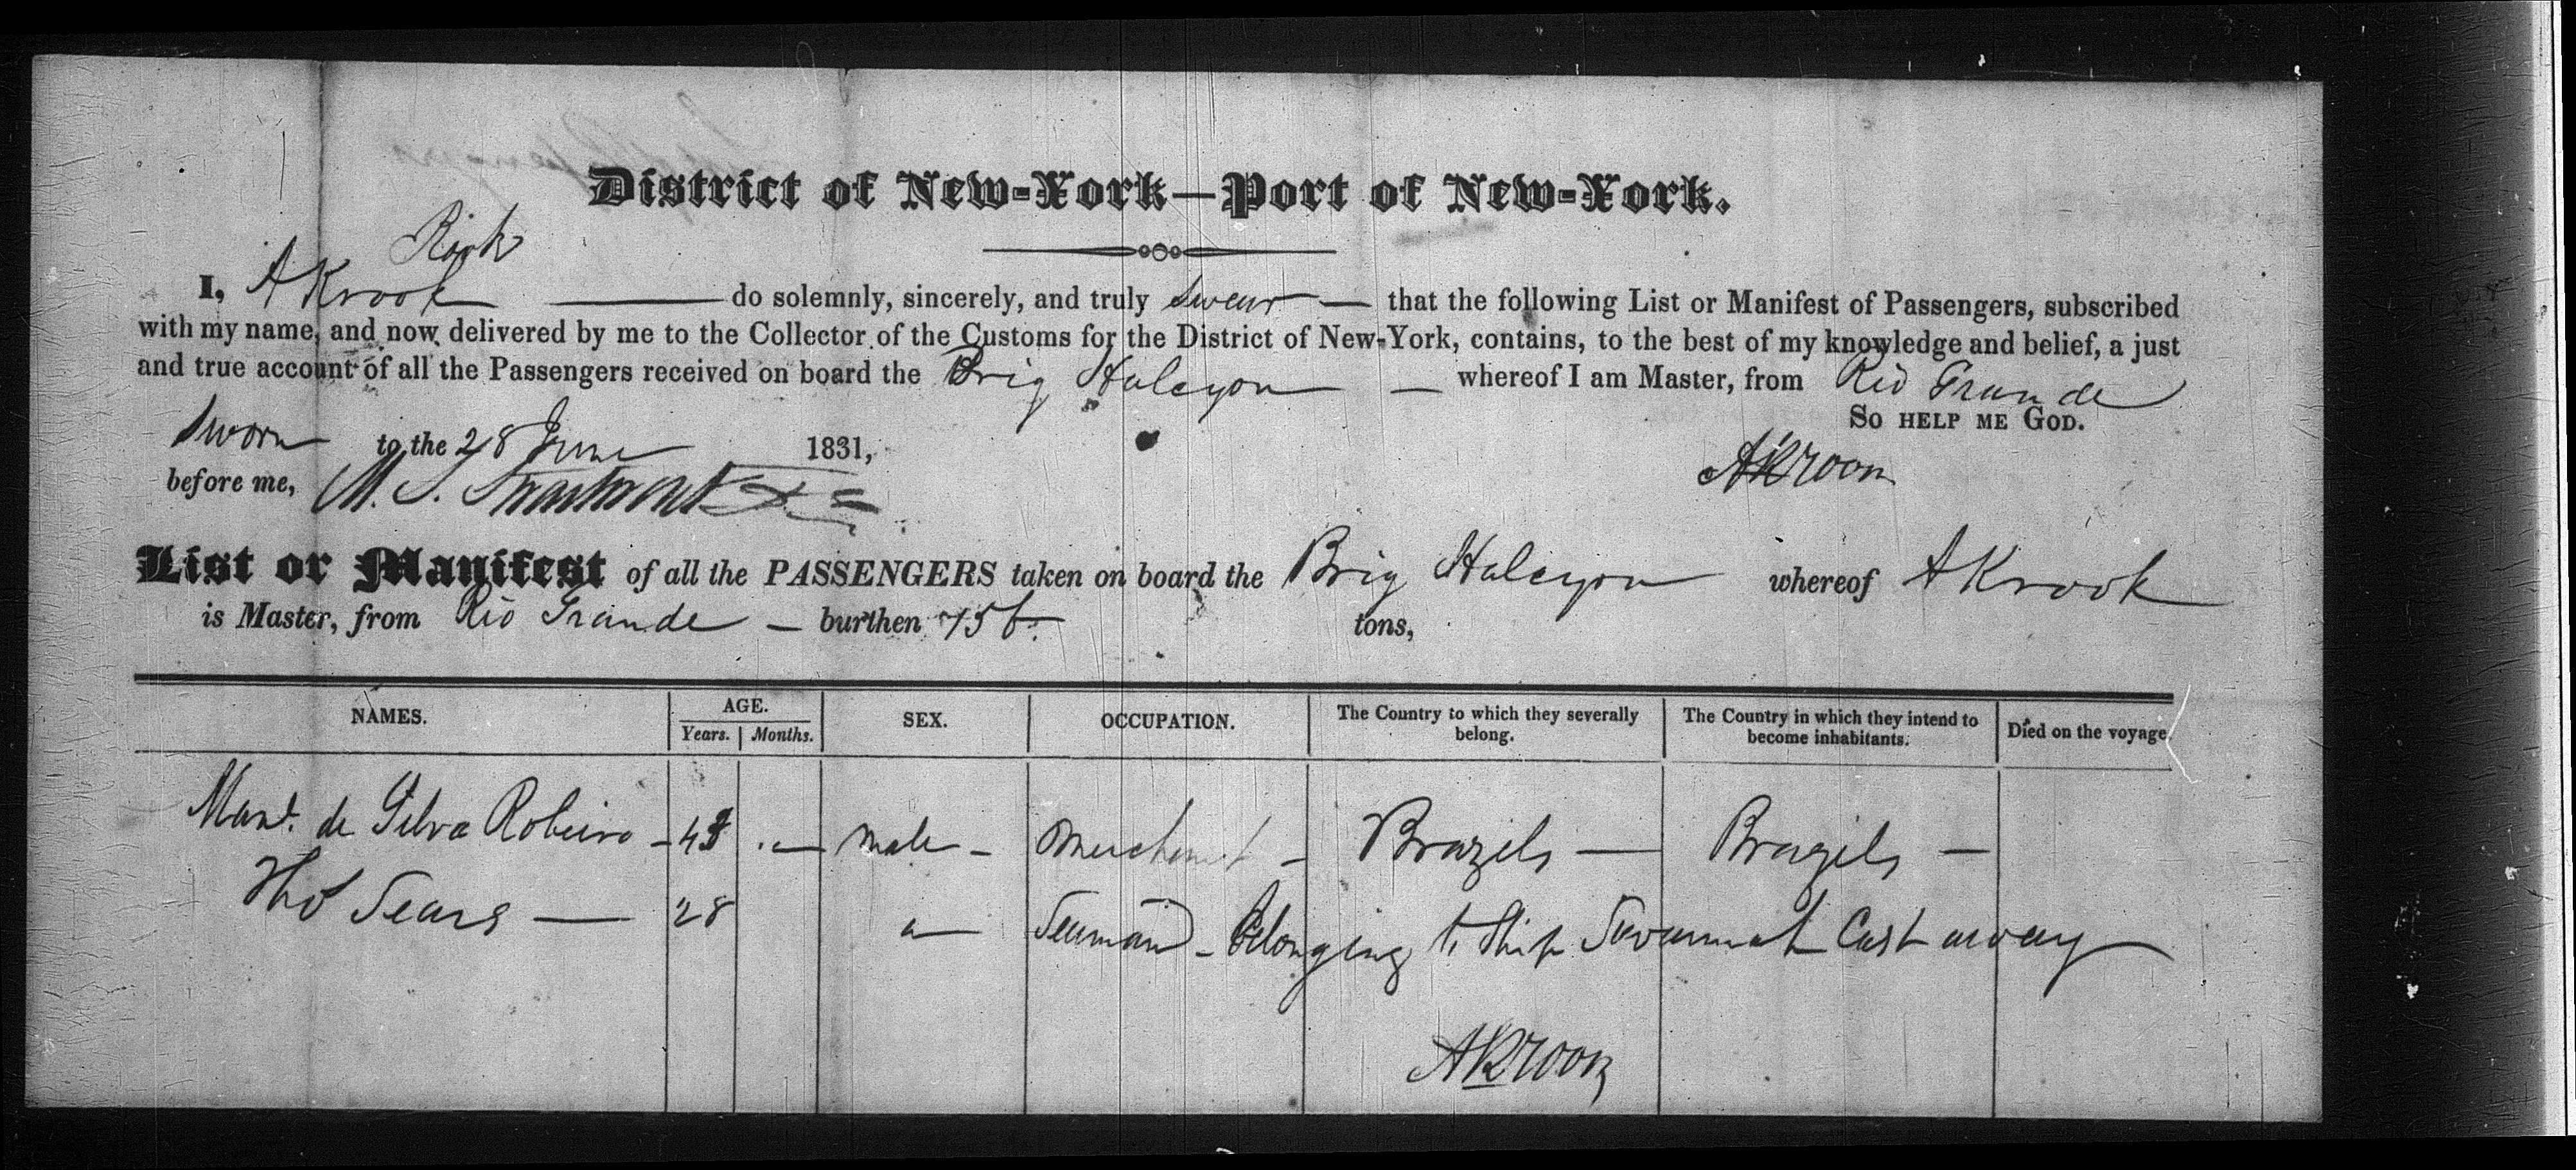 District of New-York—Port of New-York.
Rook
I, A Krook do solemnly, sincerely, and truly swear — that the following List or Manifest of Passengers, subscribed
with my name, and now delivered by me to the Collector of the Customs for the District of New-York, contains, to the best of my knowledge and belief, a just
and true account of all the Passengers received on board the Brig Halcyon — whereof I am Master, from Rio Grande
SO HELP ME GOD.
Sworn to the 28 June 1831,
AKroon
before me, M. S. Swartwout
List or Manifest of all the PASSENGERS taken on board the Brig Halcyon whereof A Krook
is Master, from Rio Grande — burthen 156 tons,
NAMES. AGE. SEX. OCCUPATION. The Country to which they severally belong. The Country in which they intend to become inhabitants. Died on the voyage
Years. Months.
Manl. de Silva Robeiro — 43 — male — Merchant — Brazils — Brazils —
Tho Sears — 28 — Seaman — Belonging to Ship Savannah Cast away
AKroon